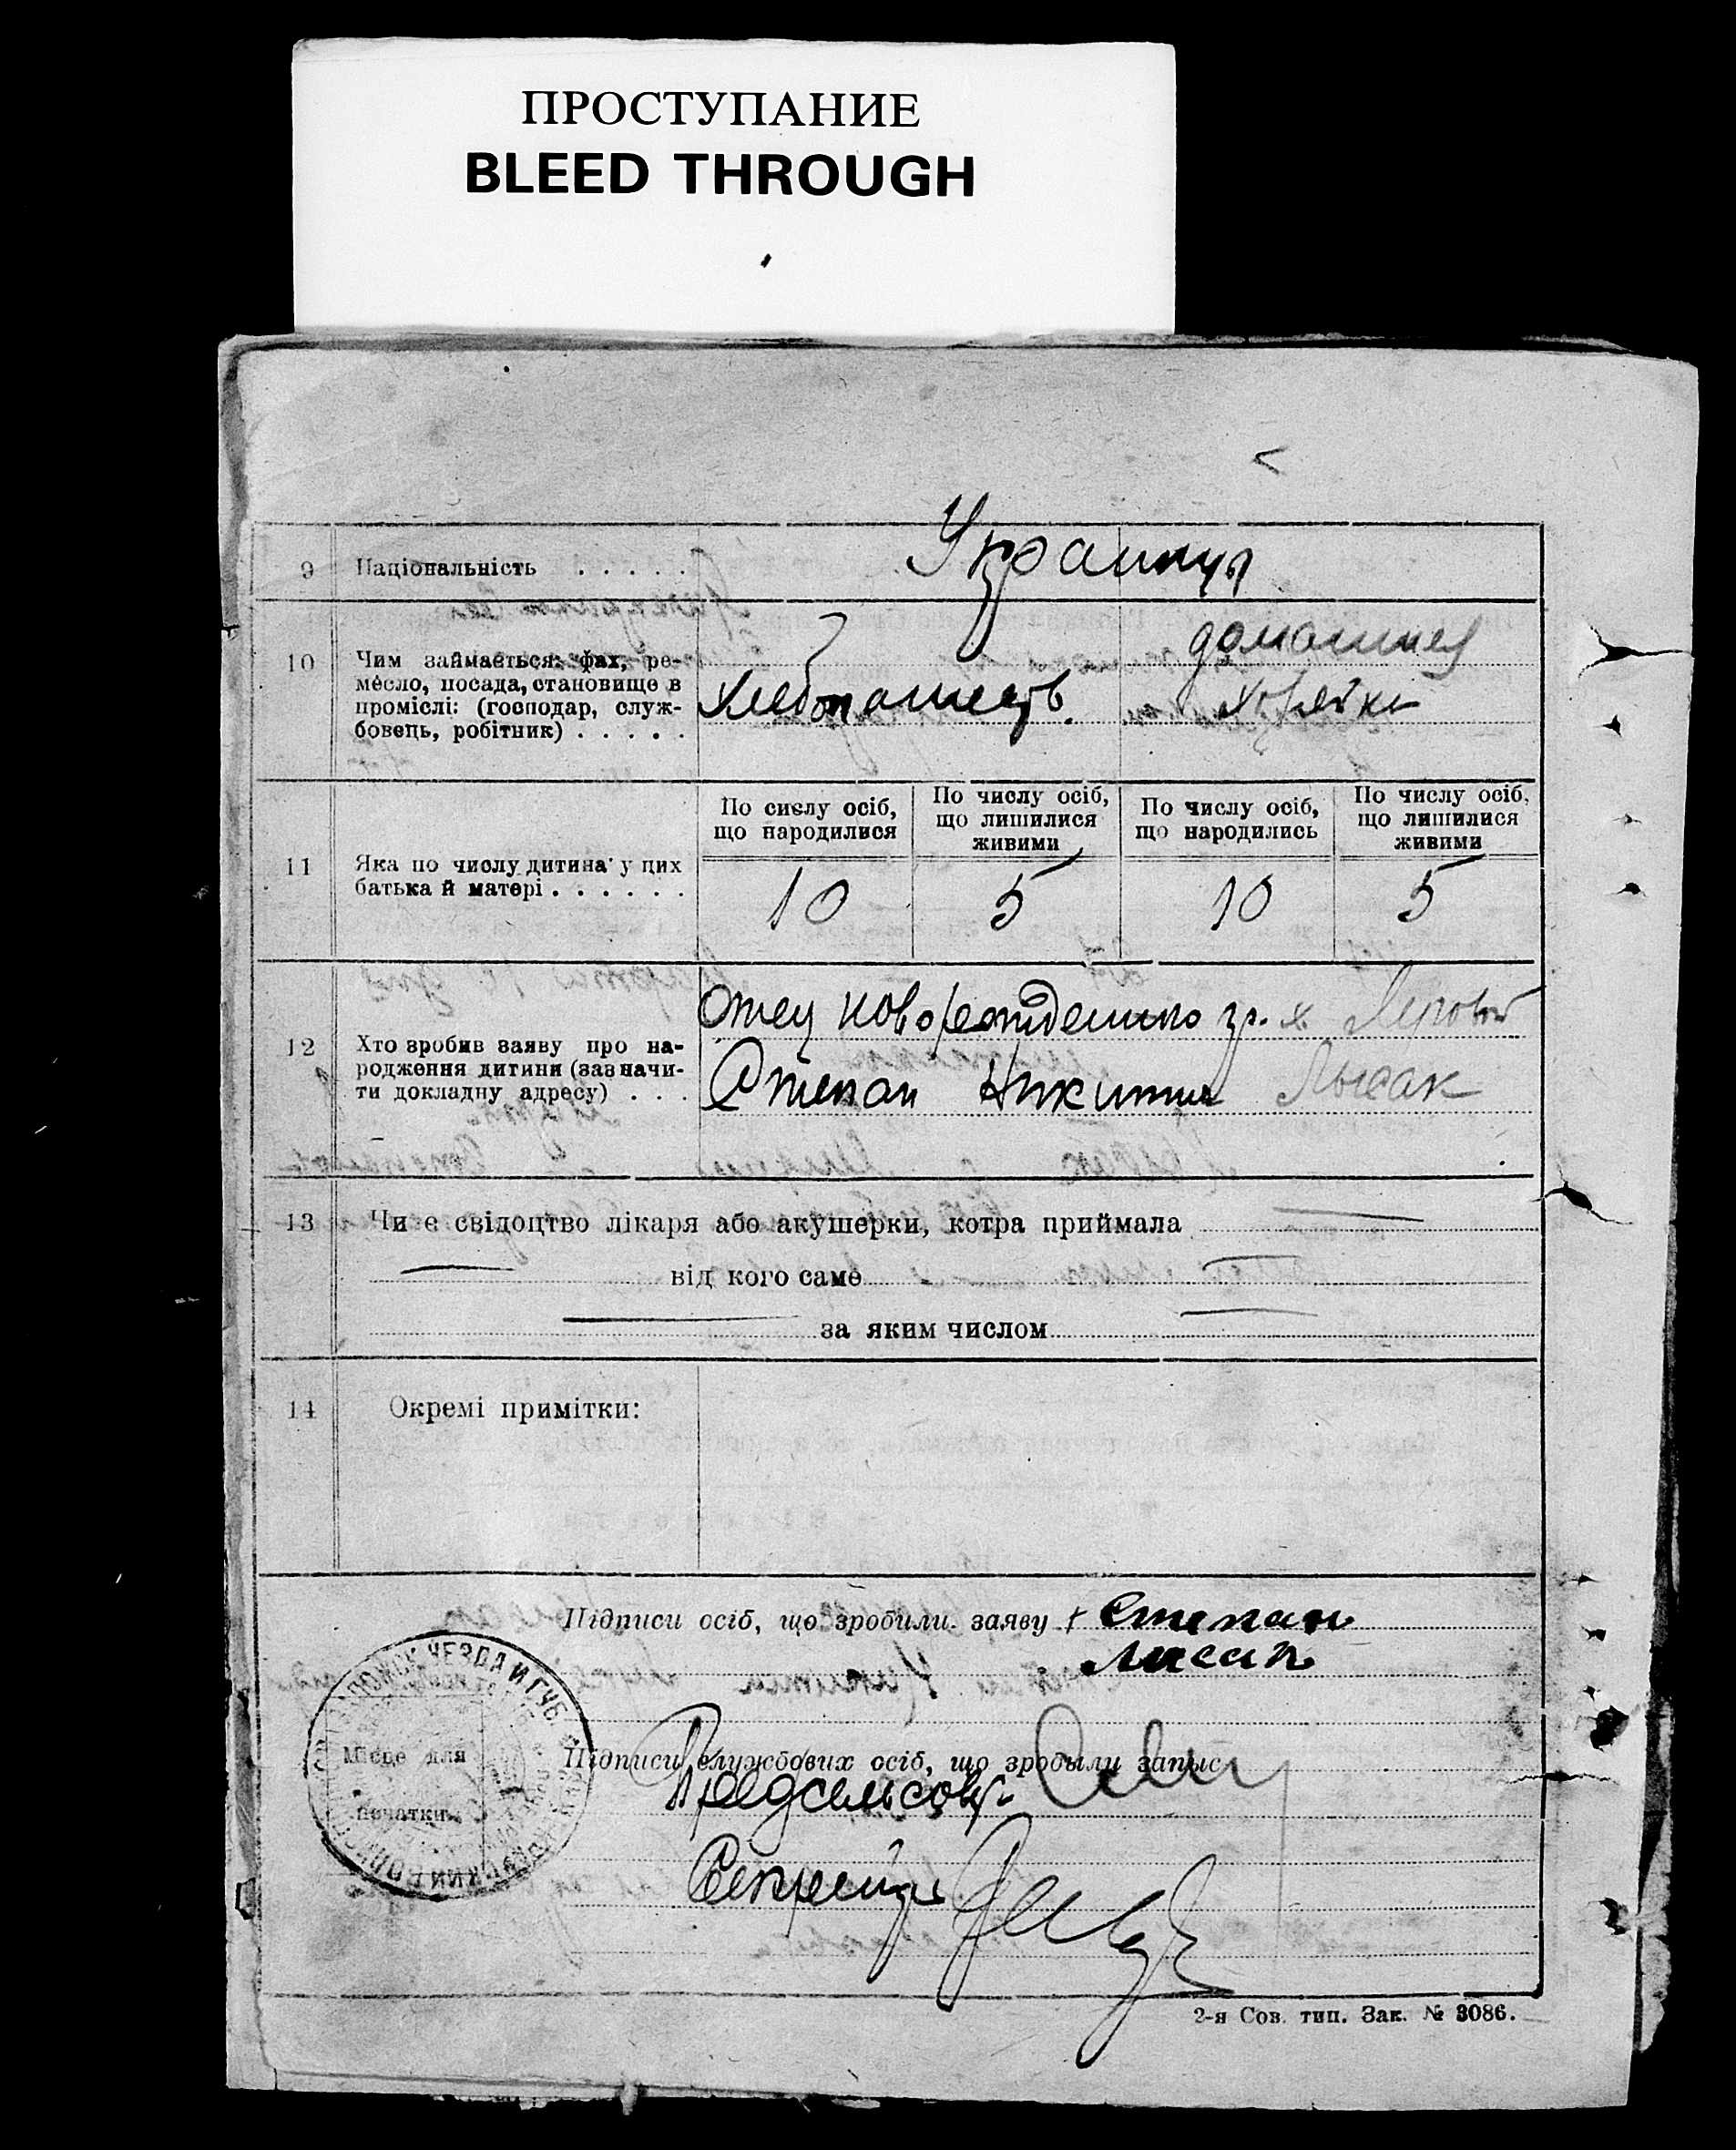 ПРОСТУПАНИЕ
BLEED THROUGH
9 Національність . . . . . Украинцы
10 Чим займається: фах, ре-
месло, посада, становище в
проміслі: (господар, служ-
бовець, робітник) . . . . .
Хлебопашець.
домашнея
хозяйка
По сислу осіб,
що народилися
По числу осіб,
що лишилися
живими
По числу осіб,
що народились
По числу осіб,
що лишилися
живими
11 Яка по числу дитина у цих
батька й матері . . . . . .
10 5 10 5
12 Хто зробив заяву про на-
родження дитини (зазначи-
ти докладну адресу) . . .
Отец новорожденного гр. х. Луговой
Степан Никитин Лысак
13 Чи є свідоцтво лікаря або акушерки, котра приймала
від кого саме
за яким числом
14 Окремі примітки:
Підписи осіб, що зробили заяву + Степан
Лисак
УЕЗДА И ГУБ.
Місце для
печатки
Підписи службових осіб, що зробыли запыс
Предсельсовт.
Секретарь
2-я Сов. тип. Зак. № 3086.